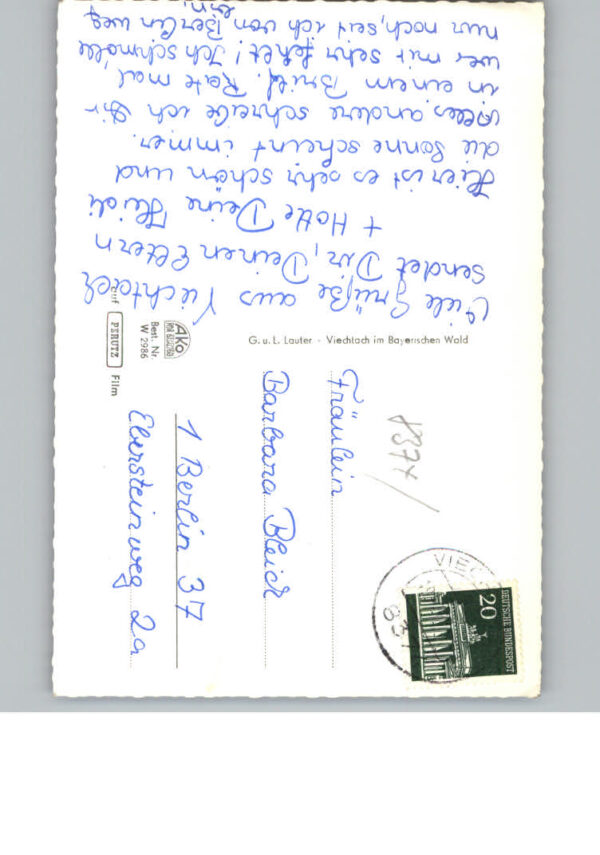 Viele Grüße aus Viechtach
sendet Dir, Deinen Eltern
+ Hotte Deine Heidi
Hier ist es sehr schön und
die Sonne scheint immer.
Alles andere schreibe ich Dir
in einem Brief. Rate mal
wer mir sehr fehlt! Ich schmolle
nur noch, seit ich von Berlin weg
bin.
G. u. L. Lauter · Viechtach im Bayerischen Wald
Ako
Best. Nr.
W 2986
auf
PERUTZ
Film
Fräulein
Barbara Bleich
1 Berlin 37
Ebersteinweg 2a
8374
VIEC
837
20
DEUTSCHE BUNDESPOST